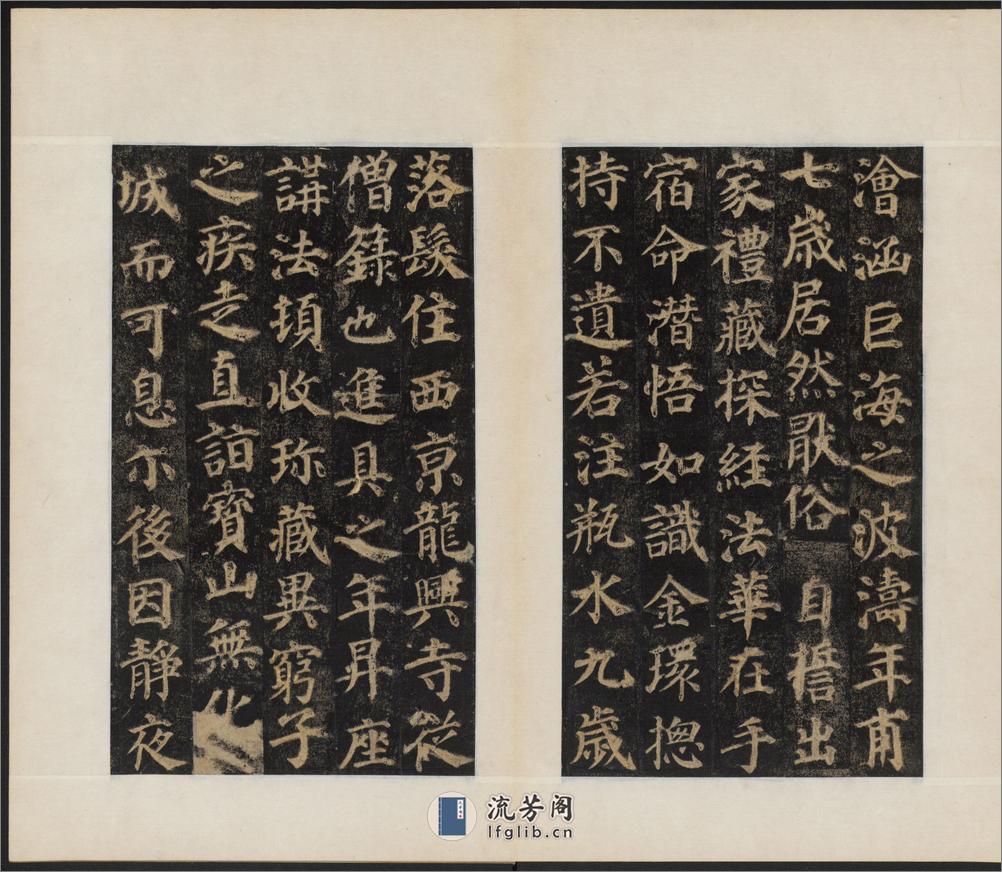 澮涵巨海之波濤年甫
七歲居然猒俗自誓出
家禮藏探經法華在手
宿命潛悟如識金環揔
持不遺若注瓶水九歲
落髮住西京龍興寺從
僧籙也進具之年昇座
講法頓收珎藏異窮子
之疾走直詣寶山無化
城而可息尒後因靜夜
流芳阁
lfglib.cn